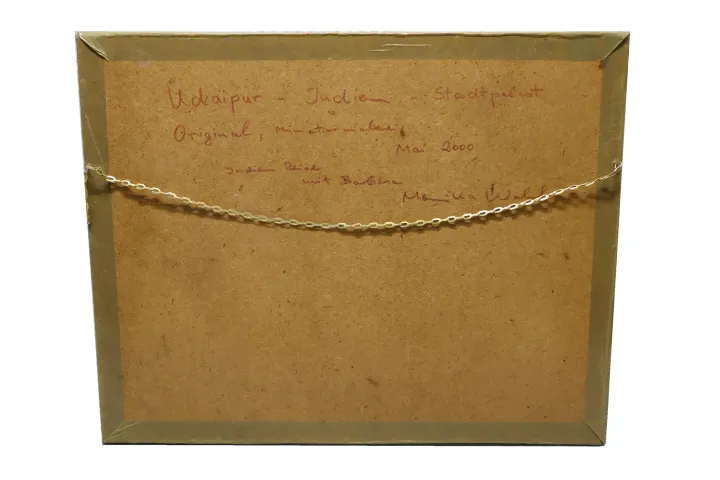 Udaipur - Indien - Stadtpalast
Original, Miniaturmalerei
Mai 2000
Indien
mit Barbara
Monika